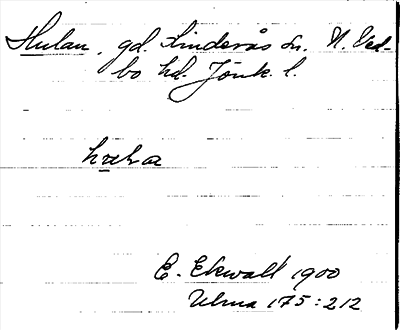 Hulan, gd. Linderås sn. N. Ved-
bo hd. Jönk. l.
E. Ekwall 1900
Ulma 175:212